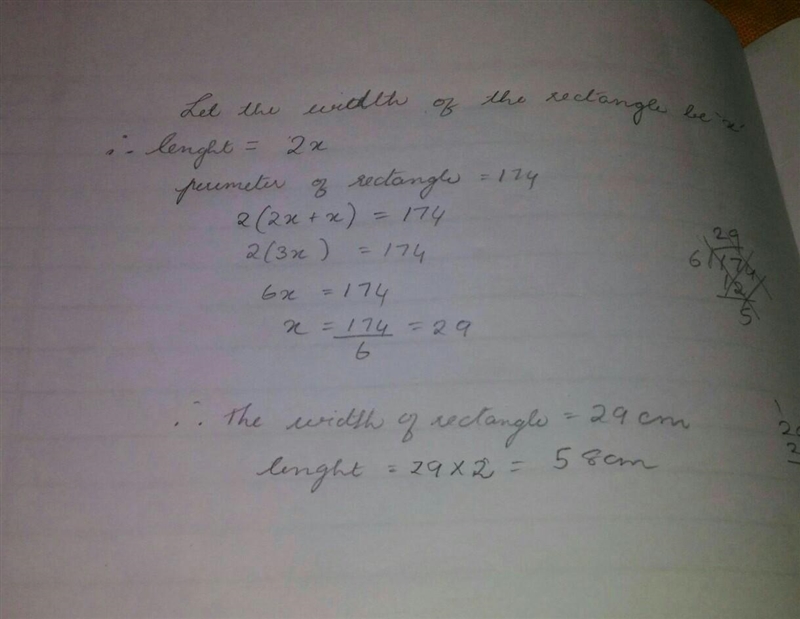 Let the width of the rectangle be x
∴ lenght = 2x
perimeter of rectangle = 174
2(2x + x) = 174
2(3x) = 174
6x = 174
x = 174/6 = 29
29
6)174
12
5
∴ The width of rectangle = 29 cm
lenght = 29 × 2 = 58 cm